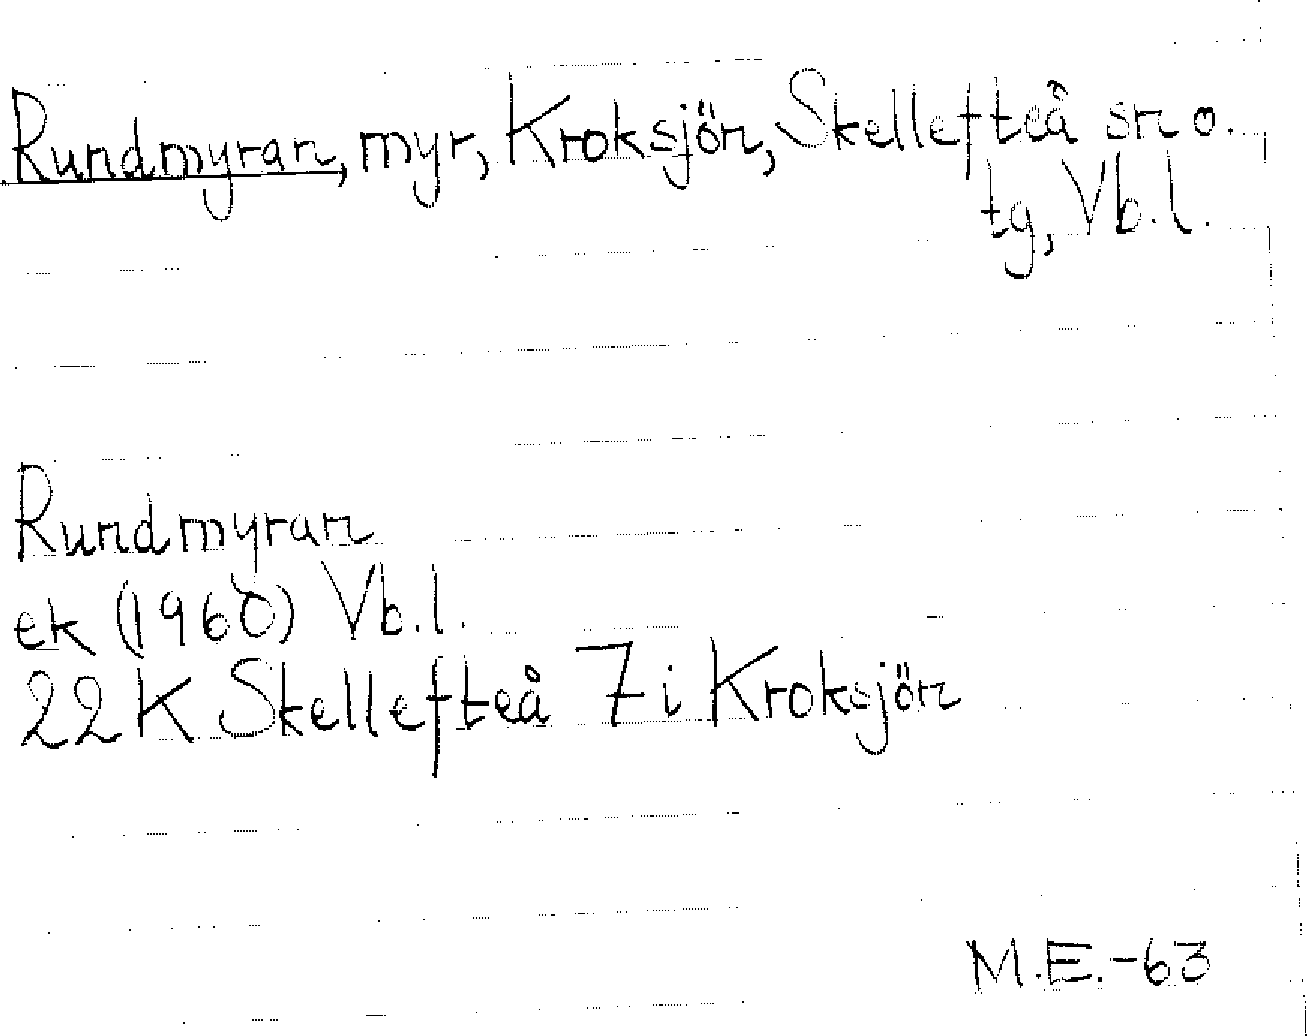 Rundmyran, myr, Kroksjön, Skellefteå sn o.
tg, Vb.l.
Rundmyran
ek (1960) Vb.l.
22K Skellefteå 7i Kroksjön
M.E.-63